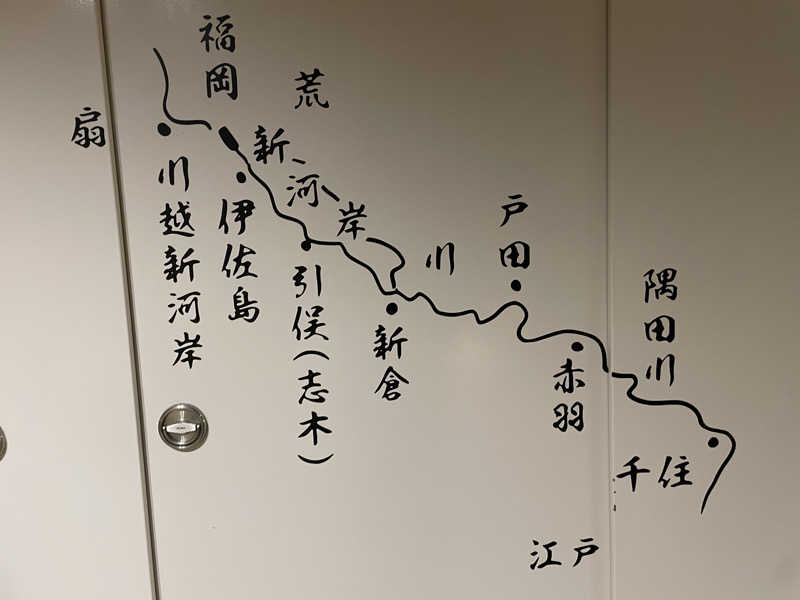 扇
福岡
荒
川越新河岸
伊佐島
新河岸
川
引俣（志木）
新倉
戸田
赤羽
隅田川
千住
江戸